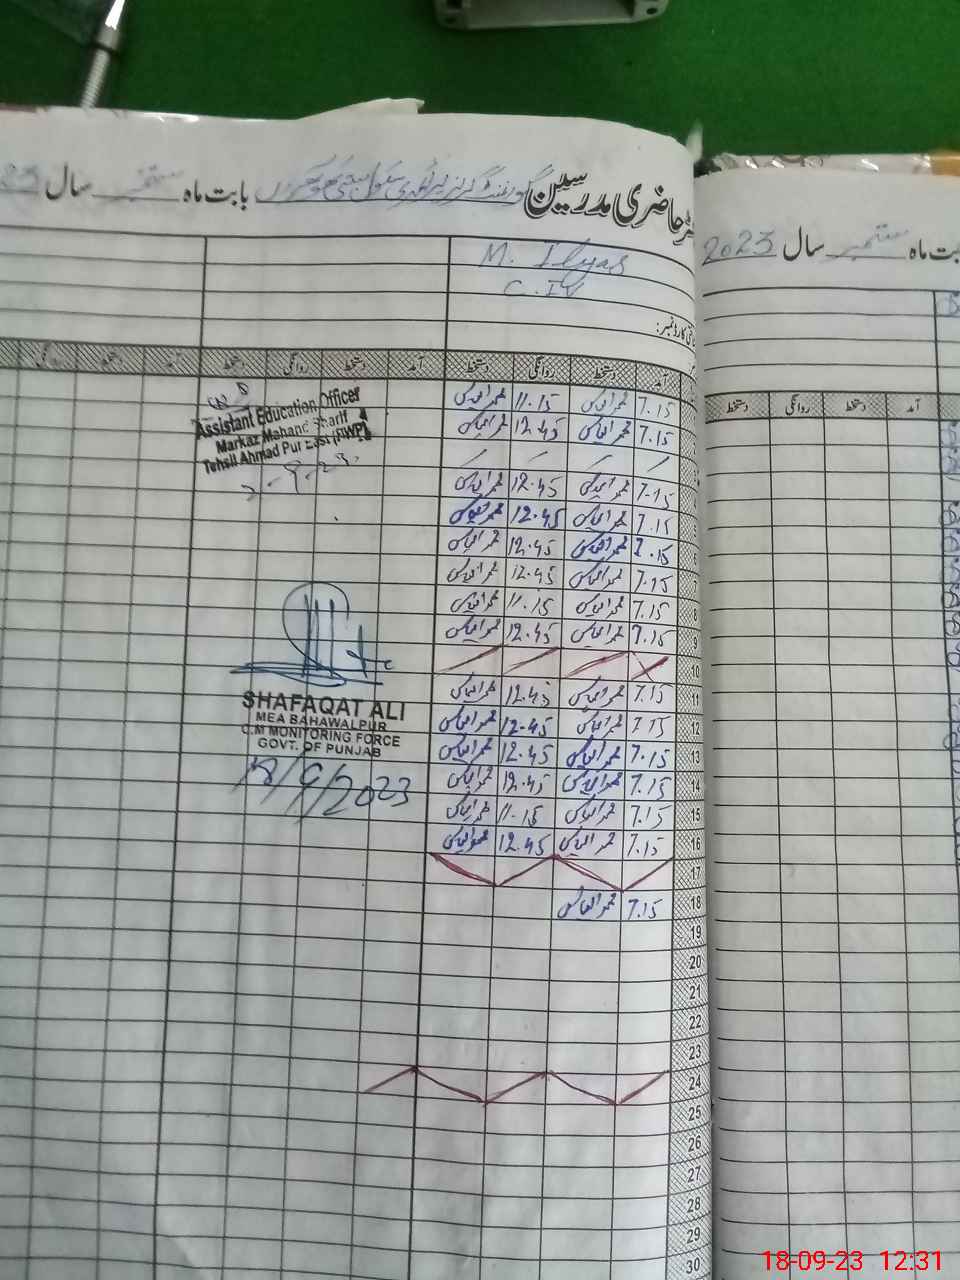 حاضری مدرسین گورنمنٹ گرلز پرائمری سکول بابت ماہ ستمبر سال 23
بابت ماہ ستمبر سال 2023
M. Ilyas
C. IV
آمد دستخط روانگی دستخط آمد دستخط روانگی دستخط
آمد دستخط روانگی دستخط
7.15 محمد الیاس 11.15 محمد الیاس
7.15 محمد الیاس 12.45 محمد الیاس
7.15 محمد الیاس 12.45 محمد الیاس
7.15 محمد الیاس 12.45 محمد الیاس
7.15 محمد الیاس 12.45 محمد الیاس
7 7.15 محمد الیاس 12.45 محمد الیاس
8 7.15 محمد الیاس 11.15 محمد الیاس
9 7.15 محمد الیاس 12.45 محمد الیاس
10
11 7.15 محمد الیاس 12.45 محمد الیاس
12 7.15 محمد الیاس 12.45 محمد الیاس
13 7.15 محمد الیاس 12.45 محمد الیاس
14 7.15 محمد الیاس 12.45 محمد الیاس
15 7.15 محمد الیاس 11.15 محمد الیاس
16 7.15 محمد الیاس 12.45 محمد الیاس
17
18 7.15 محمد الیاس
19
20
21
22
23
24
25
26
27
28
29
30
Assistant Education Officer
Markaz Mahand Sharif
Tehsil Ahmad Pur East (BWP)
2-9-23
SHAFAQAT ALI
MEA BAHAWALPUR
C.M MONITORING FORCE
GOVT. OF PUNJAB
18/9/2023
18-09-23 12:31